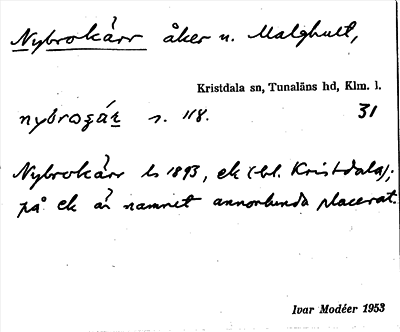 Nybrokärr åker n. Malghult,
Kristdala sn, Tunaläns hd, Klm. l.
nybrosǥár s. 118. 31
Nybrokärr ls 1893, ek (bl. Kristdala);
på ek är namnet annorlunda placerat.
Ivar Modéer 1953